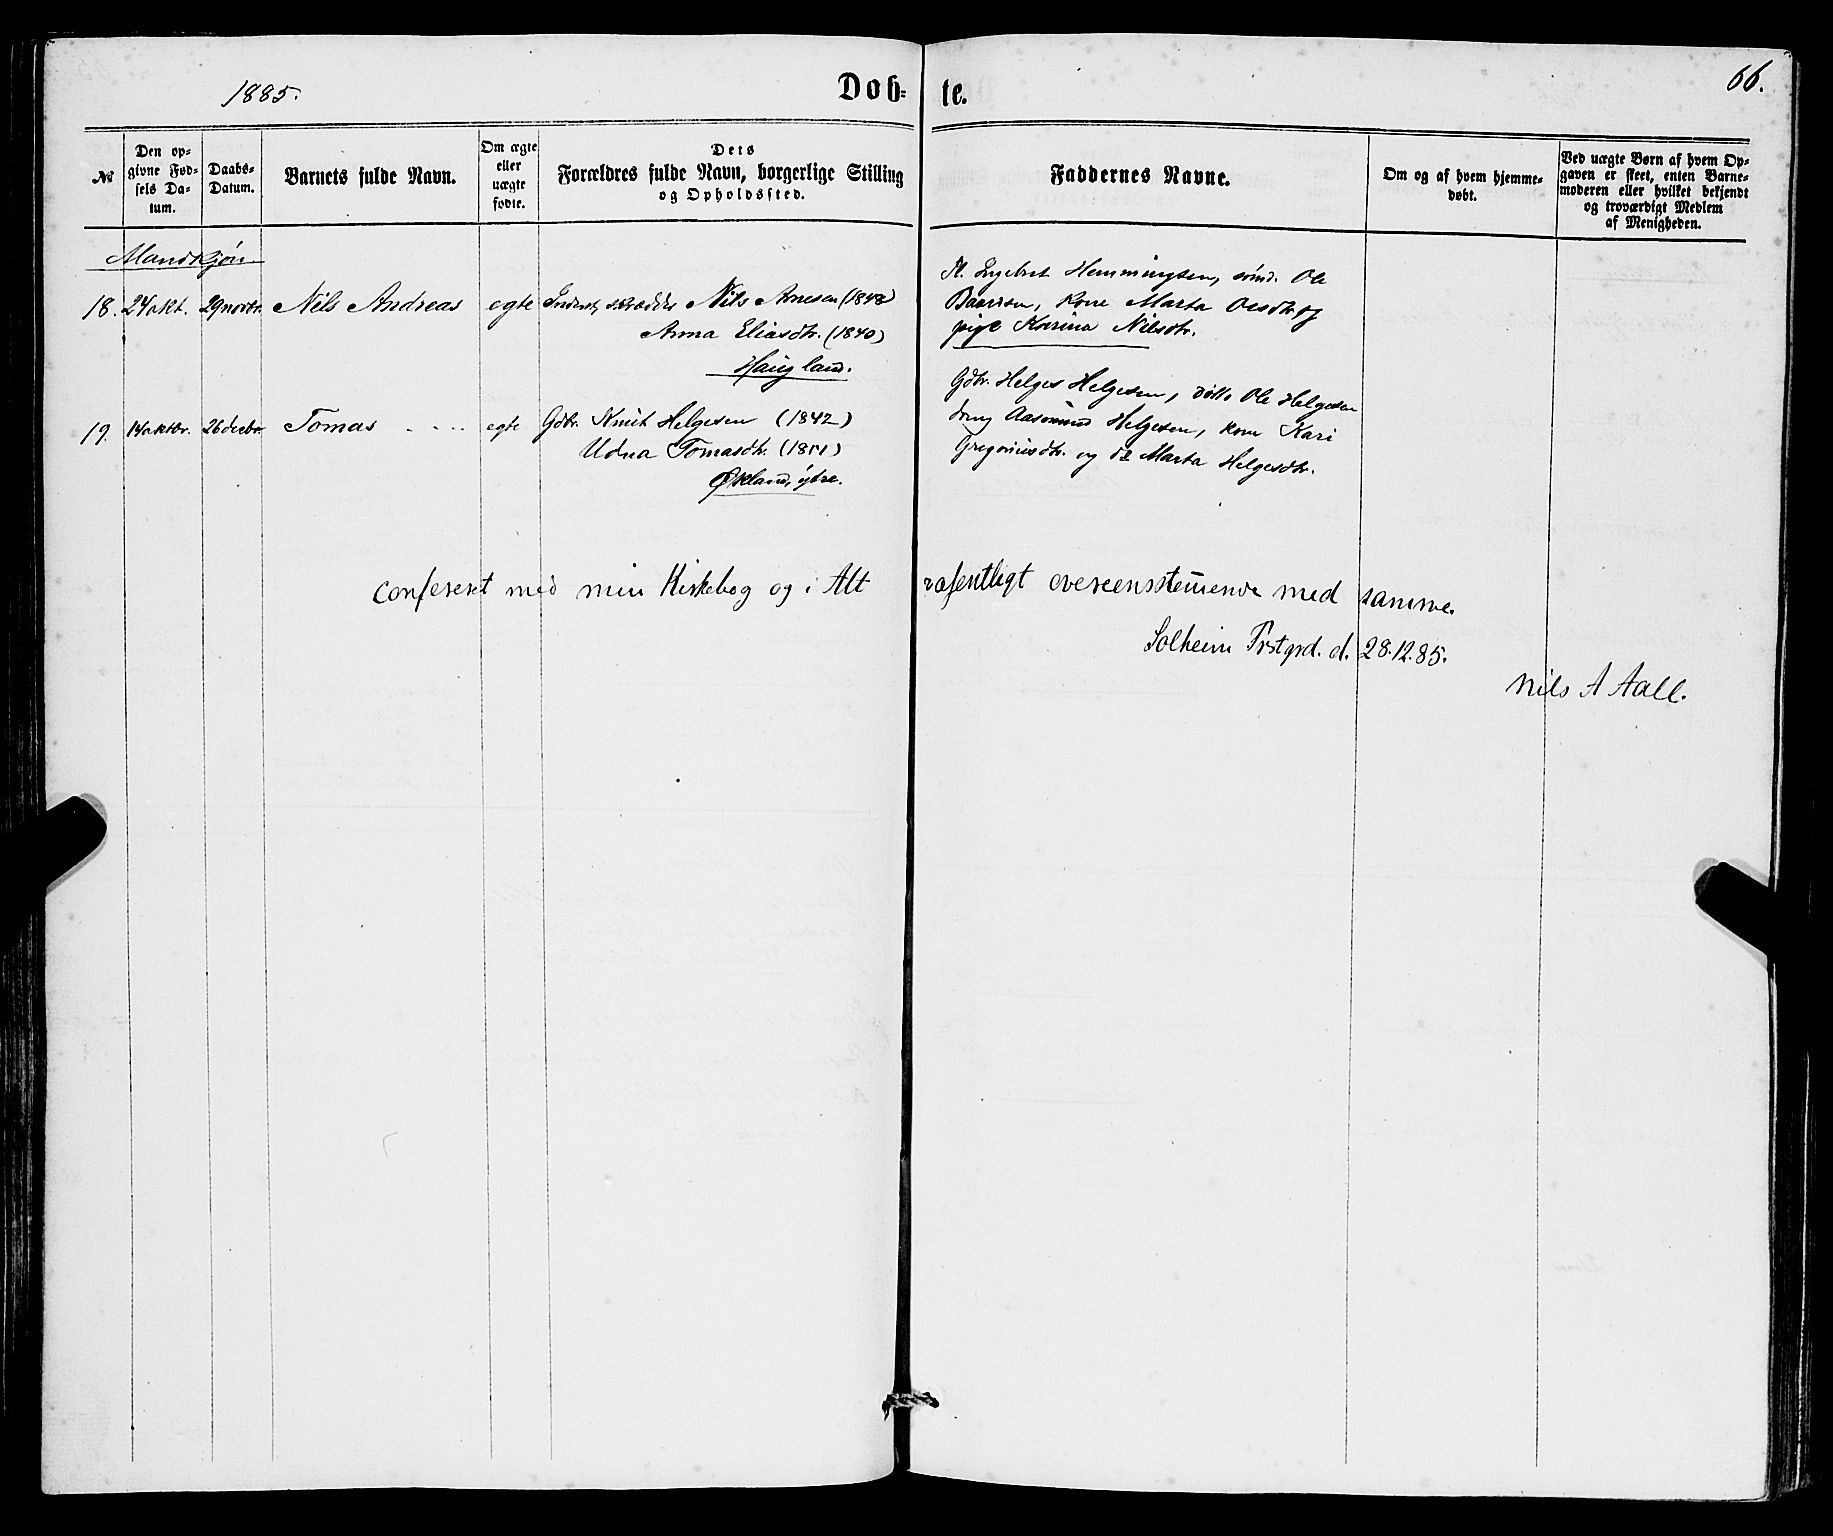 1885.
Døb-
te.
66.
№
Den op-
givne Fød-
sels Da-
tum.
Daabs-
Datum.
Barnets fulde Navn.
Om ægte
eller
uægte
fødte.
Dets
Forældres fulde Navn, borgerlige Stilling
og Opholdssted.
Faddernes Navne.
Om og af hvem hjemme-
døbt.
Ved uægte Børn af hvem Op-
gaven er skeet, enten Barne-
moderen eller hvilket bekjendt
og troværdigt Medlem
af Menigheden.
Mandkjøn
18. 24 okt. 29 novbr. Nils Andreas egte Inderst, skrædder Nils Arnesen (1848)
Anna Eliasdtr. (1840)
Haugland.
Ingebret Hemmingsen, Ole
Baardsen, kone Marta Olsdtr. og
pige Karina Nilsdtr.
19. 14 oktbr. 26 decbr. Tomas egte Gdbr. Knut Helgesen (1842)
Udna Tomasdtr. (1851)
Økland, ytre.
Gdbr. Helges Helgesen, ditto Ole Helgesen
dreng Aasmund Helgesen, kone Kari
Gregoriusdtr. og do Marta Helgesdtr.
Confereret med min Kirkebog og i Alt væsentligt overeensstemmende med samme.
Solheim Prstgrd. d. 28.12.85.
Nils A Aall.